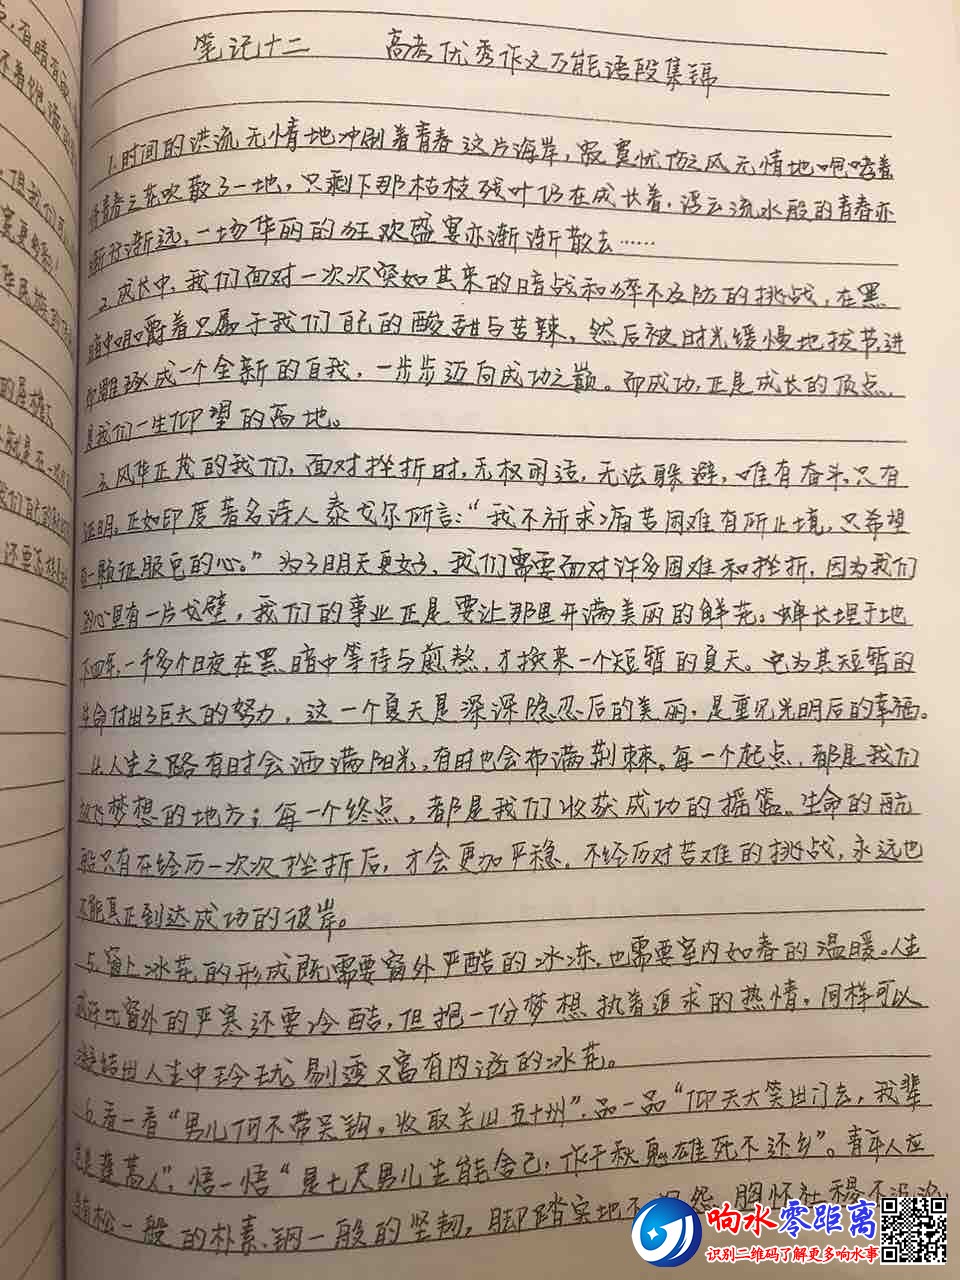 笔记十二 高考优秀作文万能语段集锦
1.时间的洪流无情地冲刷着青春这片海岸，寂寞忧伤之风无情地咆哮着
将青春之花吹散了一地，只剩下那枯枝残叶仍在成长着，浮云流水般的青春亦
渐行渐远，一场华丽的狂欢盛宴亦渐渐散去……
2.成长中，我们面对一次次突如其来的暗战和猝不及防的挑战，在黑
暗中咀嚼着只属于我们自己的酸甜与苦辣，然后被时光缓慢地拔节进
即雕琢成一个全新的自我，一步步迈向成功之巅。而成功，正是成长的顶点，
是我们一生仰望的高地。
3.风华正茂的我们，面对挫折时，无权闭语，无法躲避，唯有奋斗，只有
证明。正如印度著名诗人泰戈尔所言：“我不祈求痛苦困难有所止境，只希望
有一颗征服它的心。”为了明天更好，我们需要面对许多困难和挫折，因为我们
的心里有一片戈壁，我们的事业正是要让那里开满美丽的鲜花。蝉长埋于地
下四年，一千多个日夜在黑暗中等待与煎熬，才换来一个短暂的夏天。它为其短暂的
生命付出了巨大的努力，这一个夏天是深深隐忍后的美丽，是重见光明后的幸福。
4.人生之路有时会洒满阳光，有时也会布满荆棘。每一个起点，都是我们
放飞梦想的地方；每一个终点，都是我们收获成功的摇篮。生命的航
船只有在经历一次次挫折后，才会更加平稳，不经历对苦难的挑战，永远也
不能真正到达成功的彼岸。
5.窗上冰花的形成既需要窗外严酷的冰冻，也需要室内如春的温暖。人生
或许比窗外的严寒还要冷酷，但抱一份梦想执着追求的热情，同样可以
凝结出人生中玲珑剔透又富有内涵的冰花。
6.看一看“男儿何不带吴钩，收取关山五十州”，品一品“仰天大笑出门去，我辈
岂是蓬蒿人”，悟一悟“是七尺男儿生能舍己，作千秋鬼雄死不还乡”。青年人应
当有松一般的朴素、钢一般的坚韧，脚踏实地不怨，胸怀社稷不
响水零距离
识别二维码了解更多响水事